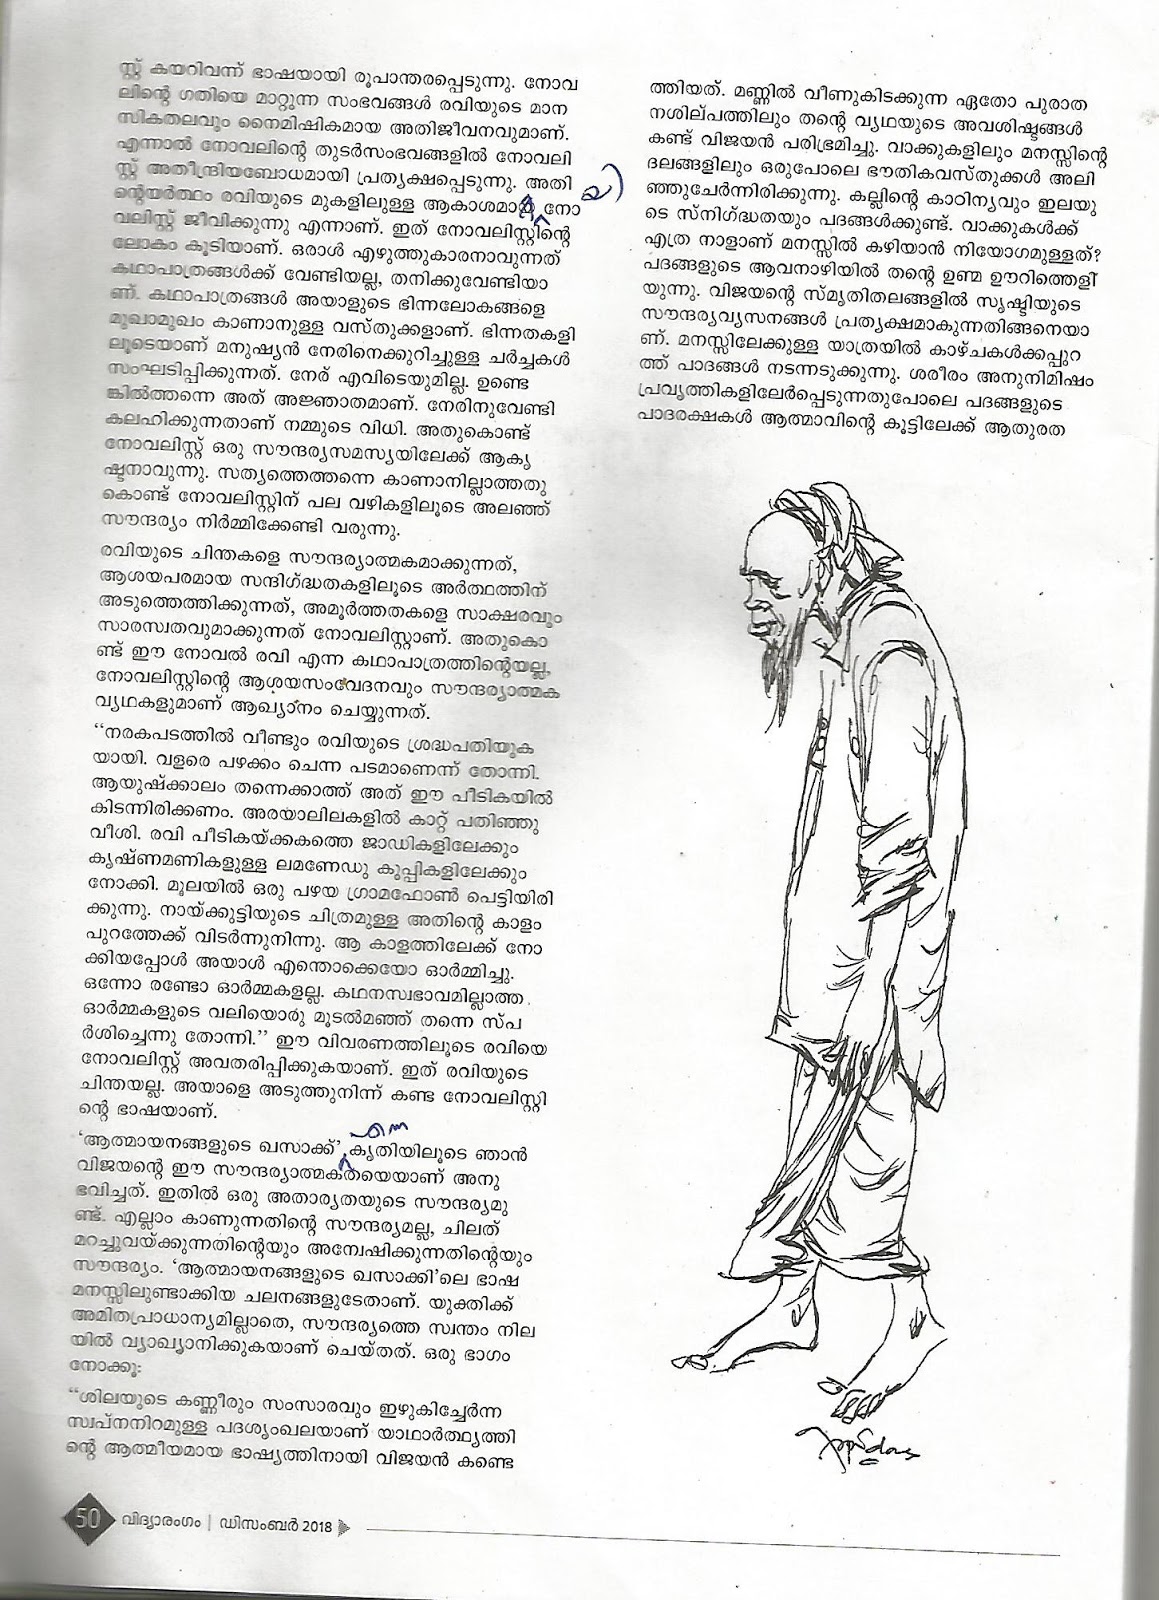 സ്റ്റ് കയറിവന്ന് ഭാഷയായി രൂപാന്തരപ്പെടുന്നു. നോവ
ലിന്റെ ഗതിയെ മാറ്റുന്ന സംഭവങ്ങൾ രവിയുടെ മാന
സികതലവും നൈമിഷികമായ അതിജീവനവുമാണ്.
എന്നാൽ നോവലിന്റെ തുടർസംഭവങ്ങളിൽ നോവലി
സ്റ്റ് അതീന്ദ്രിയബോധമായി പ്രത്യക്ഷപ്പെടുന്നു. അതി
ന്റെയർത്ഥം രവിയുടെ മുകളിലുള്ള ആകാശമായി നോ
വലിസ്റ്റ് ജീവിക്കുന്നു എന്നാണ്. ഇത് നോവലിസ്റ്റിന്റെ
ലോകം കൂടിയാണ്. ഒരാൾ എഴുത്തുകാരനാവുന്നത്
കഥാപാത്രങ്ങൾക്ക് വേണ്ടിയല്ല, തനിക്കുവേണ്ടിയാ
ണ്. കഥാപാത്രങ്ങൾ അയാളുടെ ഭിന്നലോകങ്ങളെ
മുഖാമുഖം കാണാനുള്ള വസ്തുക്കളാണ്. ഭിന്നതകളി
ലൂടെയാണ് മനുഷ്യൻ നേരിനെക്കുറിച്ചുള്ള ചർച്ചകൾ
സംഘടിപ്പിക്കുന്നത്. നേര് എവിടെയുമില്ല. ഉണ്ടെ
ങ്കിൽത്തന്നെ അത് അജ്ഞാതമാണ്. നേരിനുവേണ്ടി
കലഹിക്കുന്നതാണ് നമ്മുടെ വിധി. അതുകൊണ്ട്
നോവലിസ്റ്റ് ഒരു സൗന്ദര്യസമസ്യയിലേക്ക് ആകൃ
ഷ്ടനാവുന്നു. സത്യത്തെത്തന്നെ കാണാനില്ലാത്തതു
കൊണ്ട് നോവലിസ്റ്റിന് പല വഴികളിലൂടെ അലഞ്ഞ്
സൗന്ദര്യം നിർമ്മിക്കേണ്ടി വരുന്നു.
രവിയുടെ ചിന്തകളെ സൗന്ദര്യാത്മകമാക്കുന്നത്,
ആശയപരമായ സന്ദിഗ്ദ്ധതകളിലൂടെ അർത്ഥത്തിന്
അടുത്തെത്തിക്കുന്നത്, അമൂർത്തതകളെ സാക്ഷരവും
സാരസ്വതവുമാക്കുന്നത് നോവലിസ്റ്റാണ്. അതുകൊ
ണ്ട് ഈ നോവൽ രവി എന്ന കഥാപാത്രത്തിന്റെയല്ല,
നോവലിസ്റ്റിന്റെ ആശയസംവേദനവും സൗന്ദര്യാത്മക
വ്യഥകളുമാണ് ആഖ്യാനം ചെയ്യുന്നത്.
“നരകപടത്തിൽ വീണ്ടും രവിയുടെ ശ്രദ്ധപതിയുക
യായി. വളരെ പഴക്കം ചെന്ന പടമാണെന്ന് തോന്നി.
ആയുഷ്ക്കാലം തന്നെക്കാത്ത് അത് ഈ പീടികയിൽ
കിടന്നിരിക്കണം. അരയാലിലകളിൽ കാറ്റ് പതിഞ്ഞു
വീശി. രവി പീടികയ്ക്കകത്തെ ജാഡികളിലേക്കും
കൃഷ്ണമണികളുള്ള ലമണേഡു കുപ്പികളിലേക്കും
നോക്കി. മൂലയിൽ ഒരു പഴയ ഗ്രാമഫോൺ പെട്ടിയിരി
ക്കുന്നു. നായ്ക്കുട്ടിയുടെ ചിത്രമുള്ള അതിന്റെ കാളം
പുറത്തേക്ക് വിടർന്നുനിന്നു. ആ കാളത്തിലേക്ക് നോ
ക്കിയപ്പോൾ അയാൾ എന്തൊക്കെയോ ഓർമ്മിച്ചു.
ഒന്നോ രണ്ടോ ഓർമ്മകളല്ല. കഥനസ്വഭാവമില്ലാത്ത
ഓർമ്മകളുടെ വലിയൊരു മൂടൽമഞ്ഞ് തന്നെ സ്പ
ർശിച്ചെന്നു തോന്നി.’’ ഈ വിവരണത്തിലൂടെ രവിയെ
നോവലിസ്റ്റ് അവതരിപ്പിക്കുകയാണ്. ഇത് രവിയുടെ
ചിന്തയല്ല. അയാളെ അടുത്തുനിന്ന് കണ്ട നോവലിസ്റ്റി
ന്റെ ഭാഷയാണ്.
‘ആത്മായനങ്ങളുടെ ഖസാക്ക്’ എന്ന കൃതിയിലൂടെ ഞാൻ
വിജയന്റെ ഈ സൗന്ദര്യാത്മകതയെയാണ് അനു
ഭവിച്ചത്. ഇതിൽ ഒരു അതാര്യതയുടെ സൗന്ദര്യമു
ണ്ട്. എല്ലാം കാണുന്നതിന്റെ സൗന്ദര്യമല്ല, ചിലത്
മറച്ചുവയ്ക്കുന്നതിന്റെയും അന്വേഷിക്കുന്നതിന്റെയും
സൗന്ദര്യം. ‘ആത്മായനങ്ങളുടെ ഖസാക്കി’ലെ ഭാഷ
മനസ്സിലുണ്ടാക്കിയ ചലനങ്ങളുടേതാണ്. യുക്തിക്ക്
അമിതപ്രാധാന്യമില്ലാതെ, സൗന്ദര്യത്തെ സ്വന്തം നില
യിൽ വ്യാഖ്യാനിക്കുകയാണ് ചെയ്തത്. ഒരു ഭാഗം
നോക്കൂ:
“ശിലയുടെ കണ്ണീരും സംസാരവും ഇഴുകിച്ചേർന്ന
സ്വപ്നനിറമുള്ള പദശൃംഖലയാണ് യാഥാർത്ഥ്യത്തി
ന്റെ ആത്മീയമായ ഭാഷ്യത്തിനായി വിജയൻ കണ്ടെ
ത്തിയത്. മണ്ണിൽ വീണുകിടക്കുന്ന ഏതോ പുരാത
നശില്പത്തിലും തന്റെ വ്യഥയുടെ അവശിഷ്ടങ്ങൾ
കണ്ട് വിജയൻ പരിഭ്രമിച്ചു. വാക്കുകളിലും മനസ്സിന്റെ
ദലങ്ങളിലും ഒരുപോലെ ഭൗതികവസ്തുക്കൾ അലി
ഞ്ഞുചേർന്നിരിക്കുന്നു. കല്ലിന്റെ കാഠിന്യവും ഇലയു
ടെ സ്നിഗ്ദ്ധതയും പദങ്ങൾക്കുണ്ട്. വാക്കുകൾക്ക്
എത്ര നാളാണ് മനസ്സിൽ കഴിയാൻ നിയോഗമുള്ളത്?
പദങ്ങളുടെ ആവനാഴിയിൽ തന്റെ ഉണ്മ ഊറിത്തെളി
യുന്നു. വിജയന്റെ സ്മൃതിതലങ്ങളിൽ സൃഷ്ടിയുടെ
സൗന്ദര്യവ്യസനങ്ങൾ പ്രത്യക്ഷമാകുന്നതിങ്ങനെയാ
ണ്. മനസ്സിലേക്കുള്ള യാത്രയിൽ കാഴ്ചകൾക്കപ്പുറ
ത്ത് പാദങ്ങൾ നടന്നടുക്കുന്നു. ശരീരം അനുനിമിഷം
പ്രവൃത്തികളിലേർപ്പെടുന്നതുപോലെ പദങ്ങളുടെ
പാദരക്ഷകൾ ആത്മാവിന്റെ കൂട്ടിലേക്ക് ആതുരത
50 വിദ്യാരംഗം | ഡിസംബർ 2018